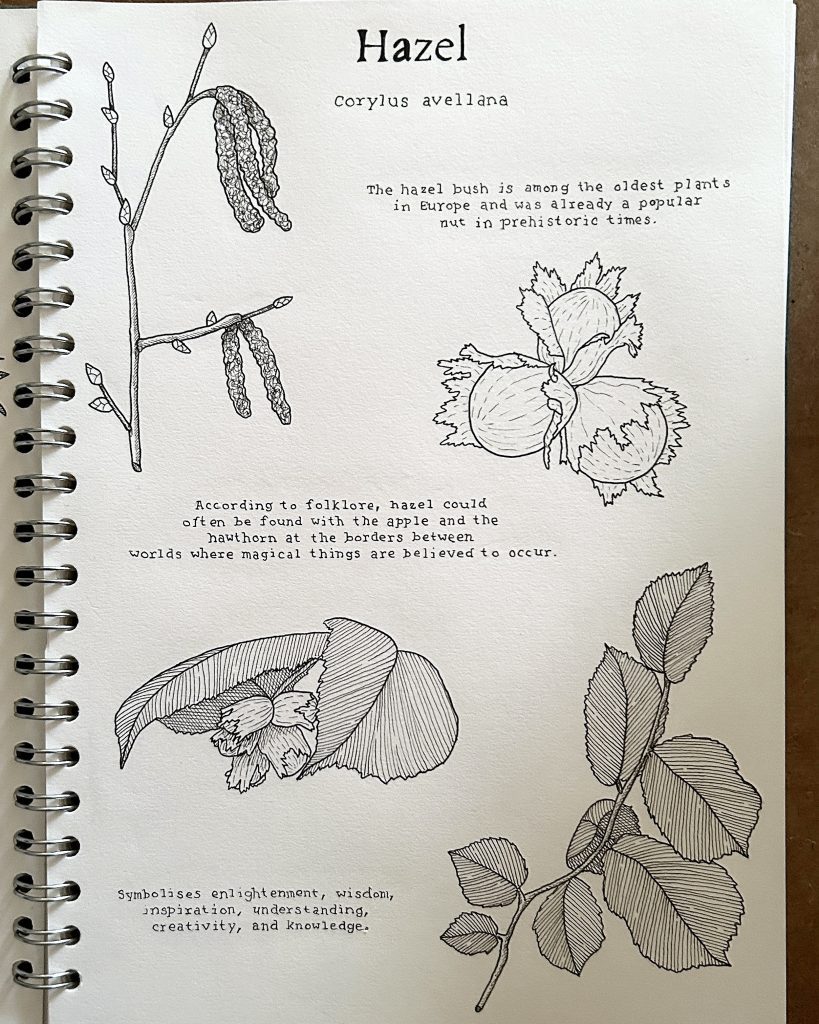 Hazel
Corylus avellana
The hazel bush is among the oldest plants
in Europe and was already a popular
nut in prehistoric times.
According to folklore, hazel could
often be found with the apple and the
hawthorn at the borders between
worlds where magical things are believed to occur.
Symbolises enlightenment, wisdom,
inspiration, understanding,
creativity, and knowledge.